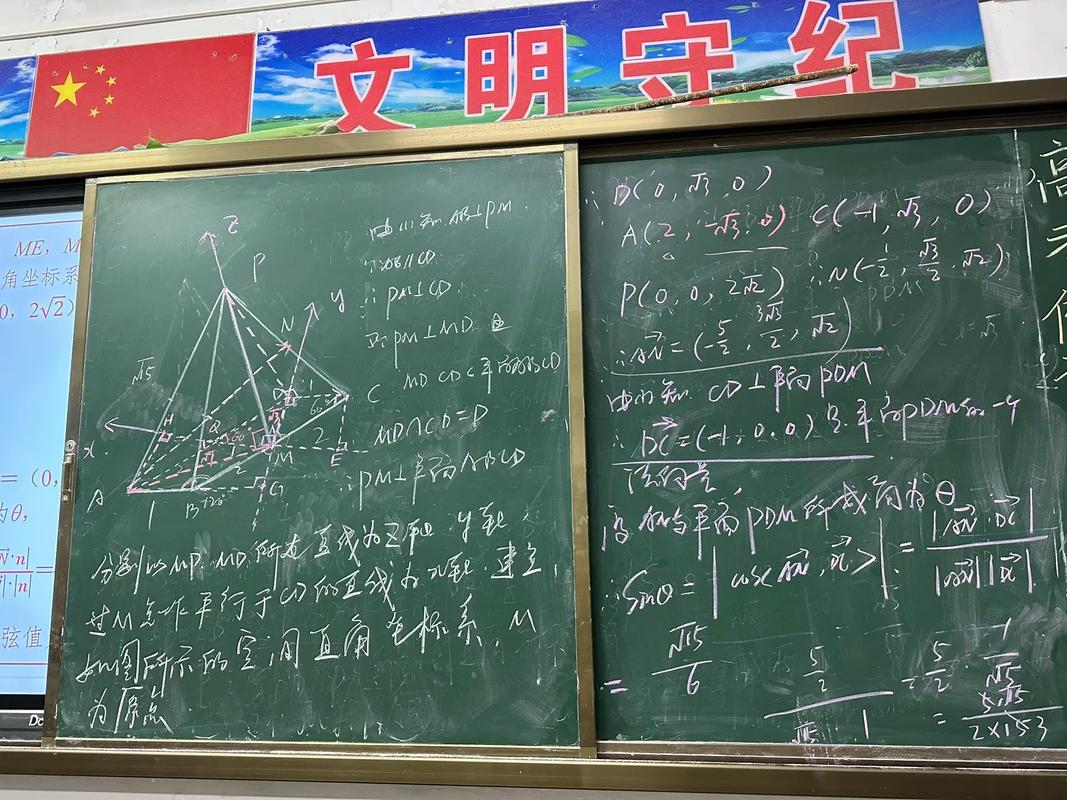 文明守纪
ME, M
角坐标系
0, 2√2)
= (0,
的θ,
N·n|
|·|n|
=
弦值
z
P
y
√5
N
D
C
x
H
Q
60°
M
2
E
A
1
B
120°
G
由(1)知 AB⊥PM
∵AB∥CD
∴PM⊥CD
又PM⊥MD 且
MD CD⊂平面ABCD
MD∩CD=D
∴PM⊥平面ABCD
分别以MP、MD所在直线为Z轴 y轴
过M点作平行于CD的直线为x轴.建立
如图所示的空间直角坐标系, M
为原点
∴D(0, √3, 0)
A(2, -√3, 0) C(-1, √3, 0)
P(0, 0, 2√2) ∴N(-1/2, √3/2, √2)
∴AN=(-5/2, 3√3/2, √2)
由(1)知 CD⊥平面PDM
∴DC=(-1, 0, 0)为平面PDM的一个
法向量,
设AN与平面PDM所成角为θ
∴Sinθ=|cos<AN, DC>|=|AN·DC|/|AN||DC|
=√15/6
5/2
√15 1
=5/2 1/√15
=5√15/2×153
高